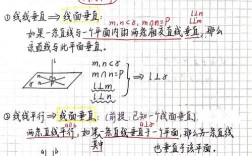 ①线线垂直⇒线面垂直:
m,n⊂α, m∩n=P l⊥n l⊥m
如果一条直线与一个平面内的两条相交直线垂直,那么
该直线与此平面垂直
m,n⊂α
m∩n=P
l⊥m
l⊥n
⇒ l⊥α
②线线平行⇒线面垂直:(前提:已知一个线面垂直)
a∥b a⊥α
两条直线平行,如果一条直线垂直于一个平面,那么另一条直线
其中
也垂直于该平面.